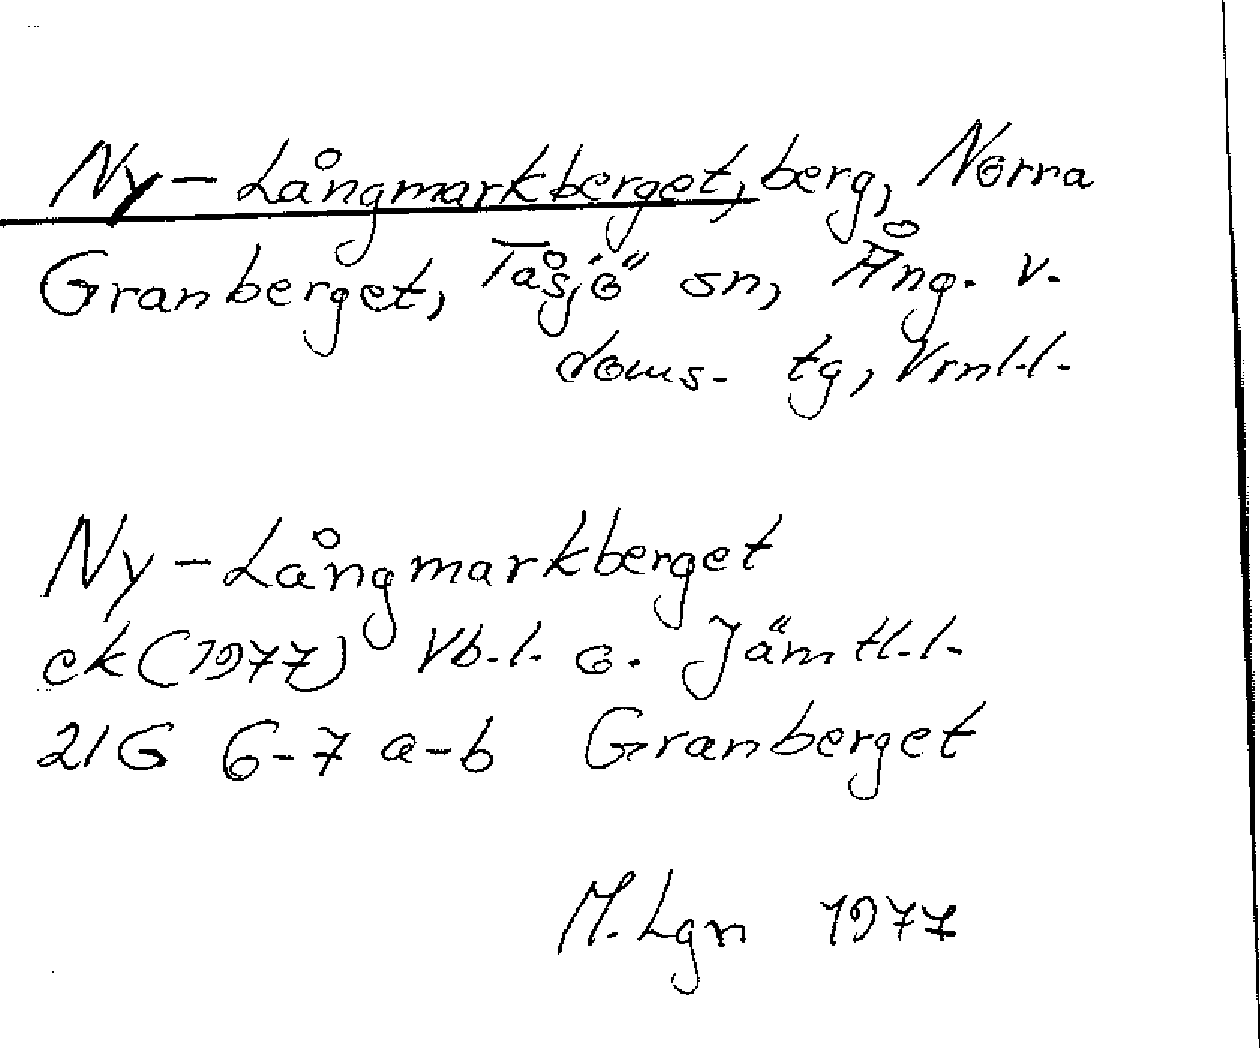 Ny-Långmarkberget, berg, Norra
Granberget, Tåsjö sn, Ång. v.
doms. tg, Vrnl.l.
Ny-Långmarkberget
ek (1977) Vb.l. o. Jämtl.l.
21G 6-7 a-b Granberget
M. Lgn 1977